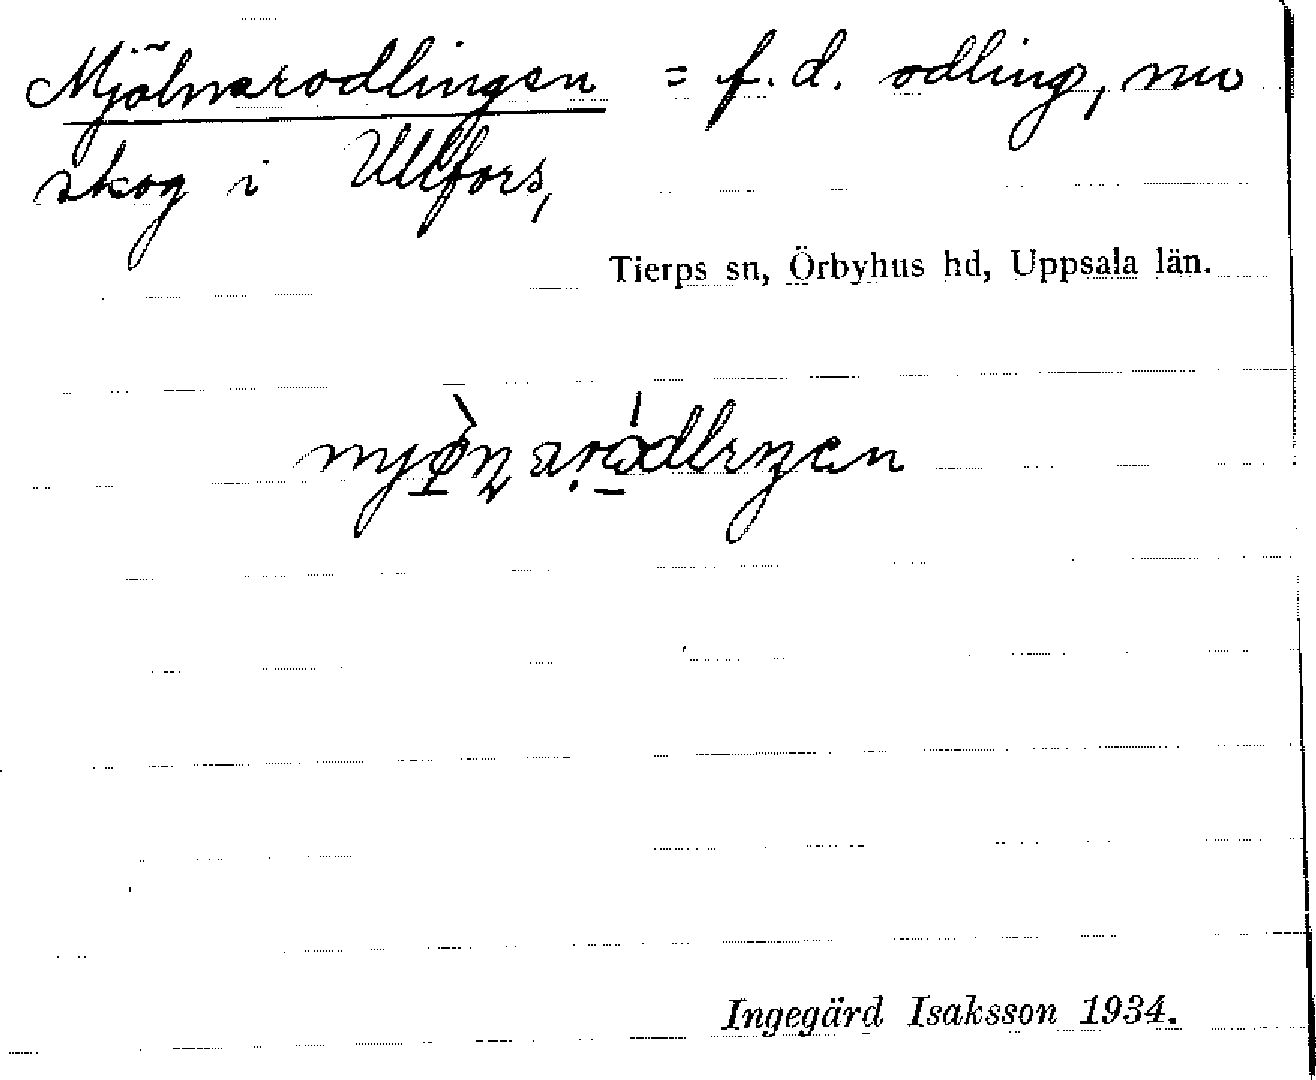 Mjölnarodlingen = f.d. odling, nu
skog i Ullfors,
Tierps sn, Örbyhus hd, Uppsala län.
Ingegärd Isaksson 1934.